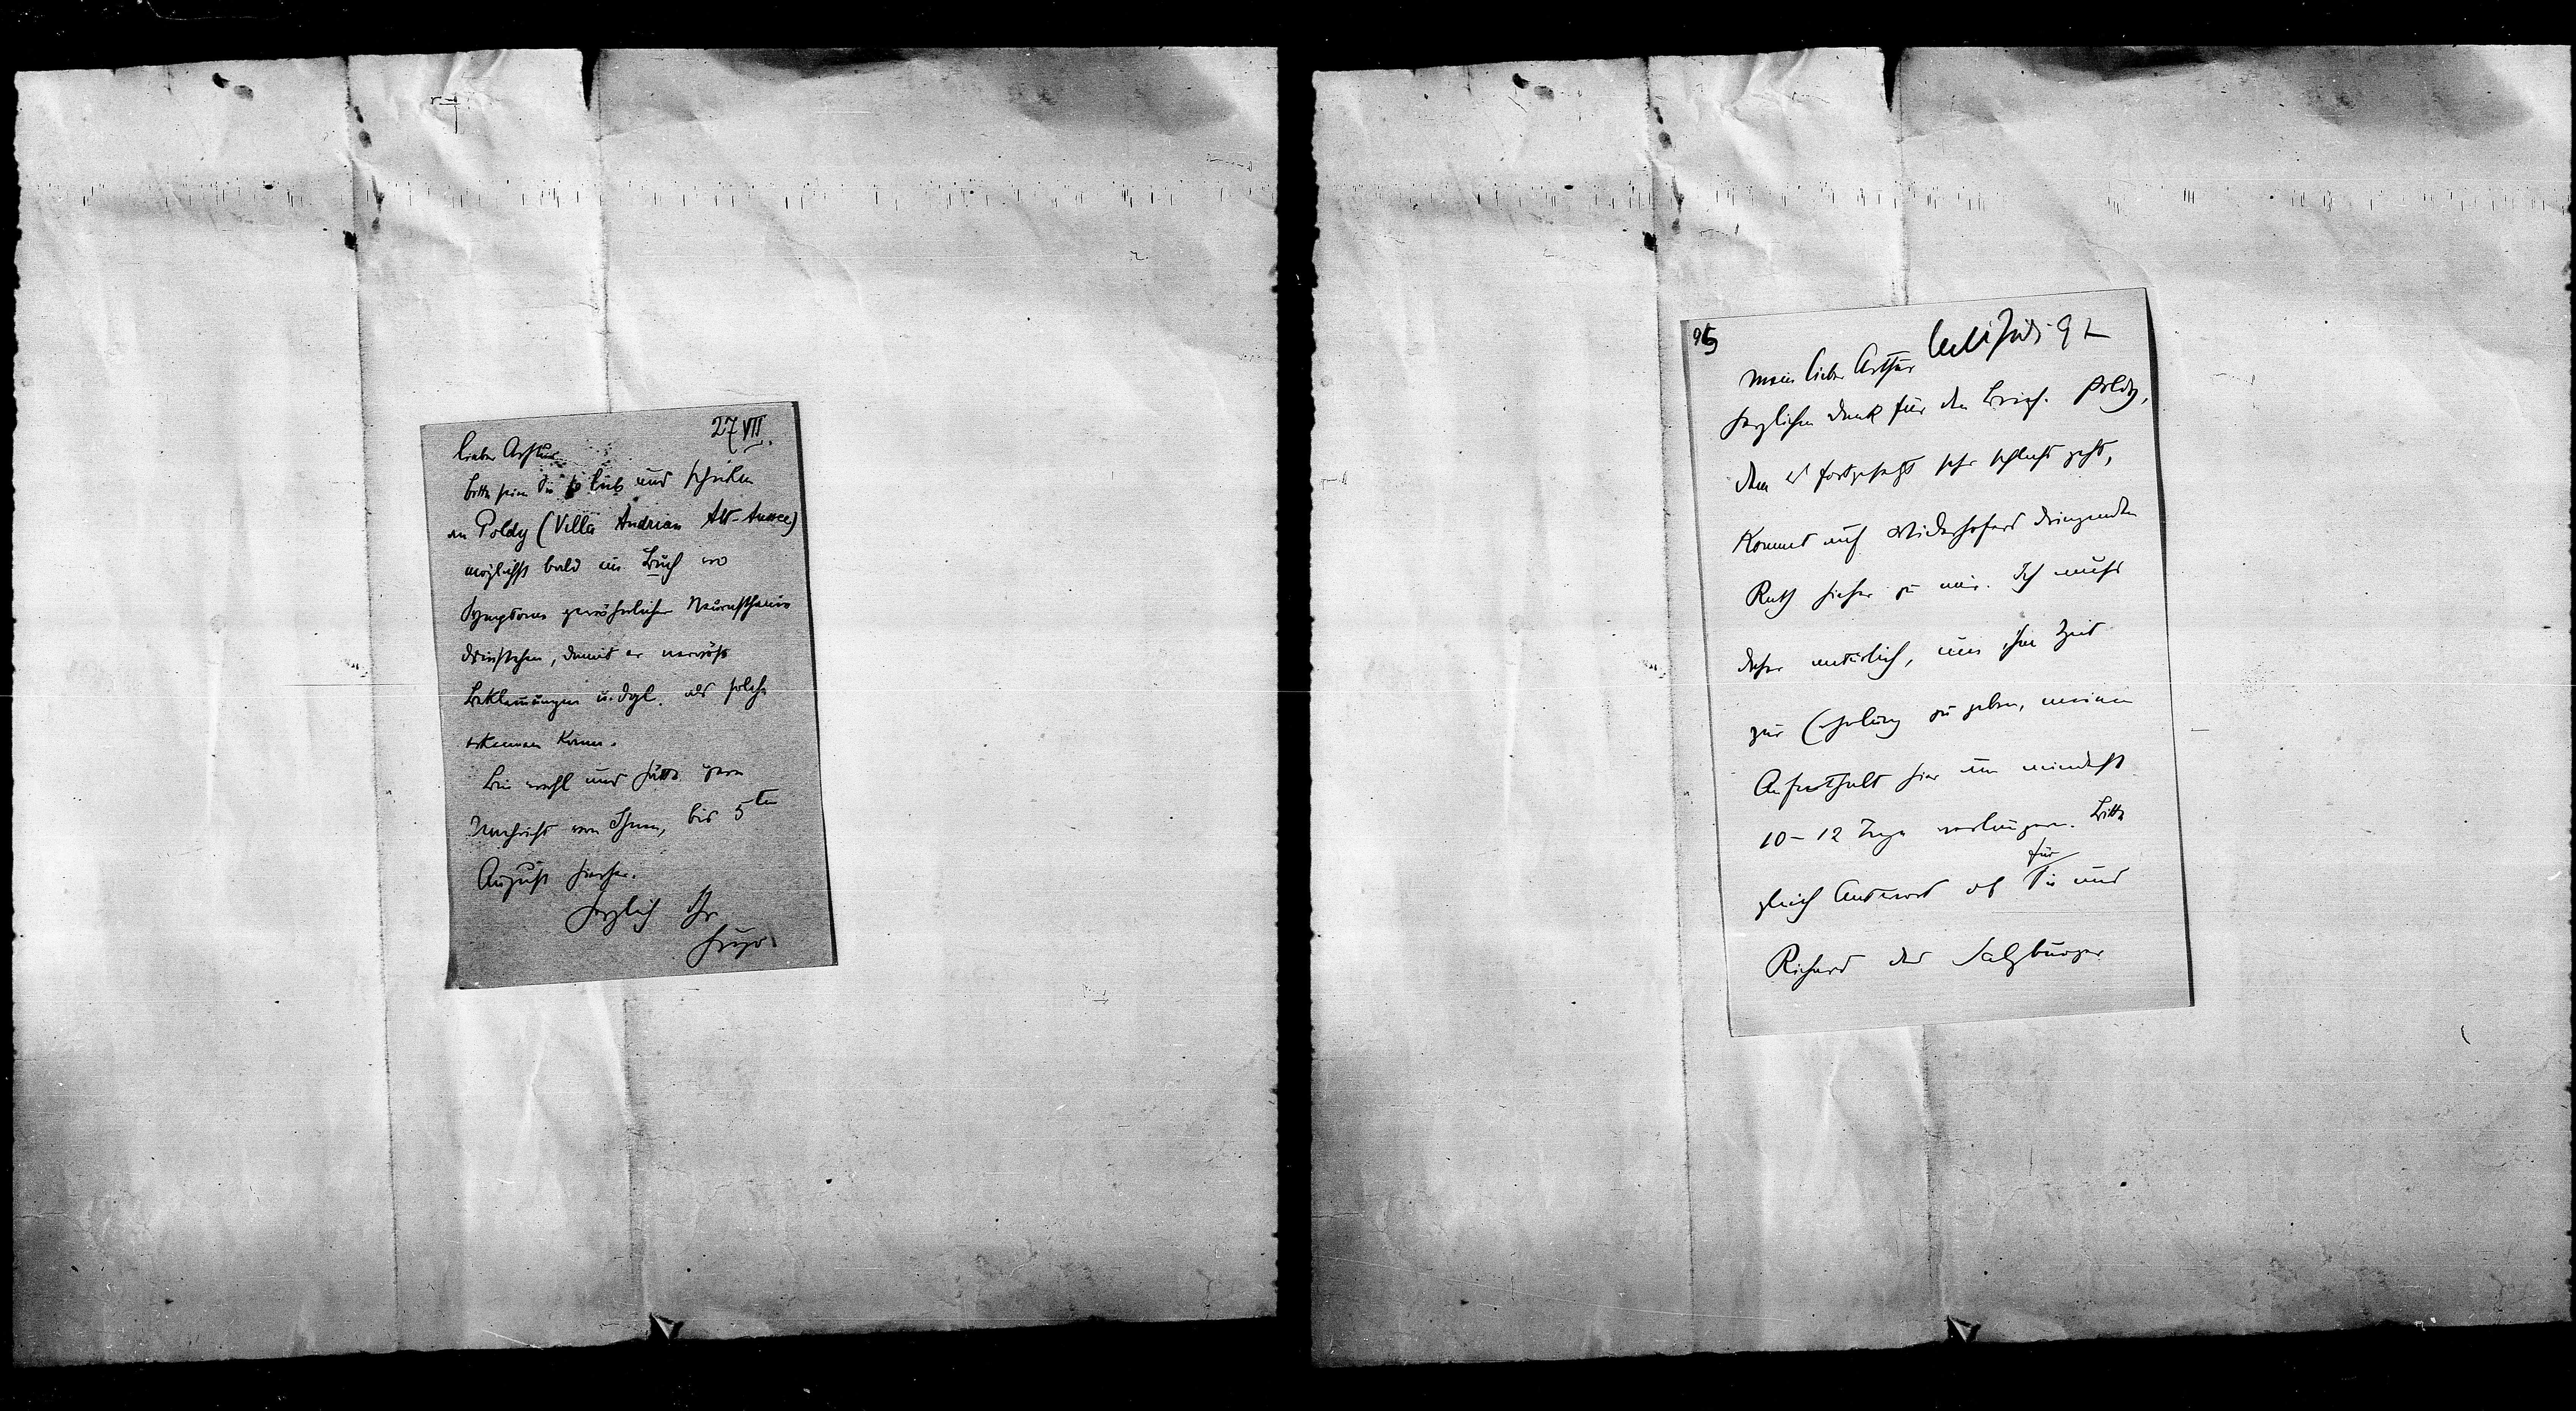 27 VII.
lieber Arthur
bitte seien Sie so lieb und schicken
an Poldy (Villa Andrian Alt-Aussee)
möglichst bald ein Buch wo
Symptome gewöhnlicher Neurasthenie
drinstehen, damit er nervöse
Beklemmungen u. dgl. als solche
erkennen kann.
Bin wohl und hätte gern
Nachricht von Ihnen, bis 5ten
August hierher.
Herzlich Ihr
Hugo.
95
Juli 97
mein lieber Arthur
herzlichen Dank für den Brief. Poldy,
dem es fortgesetzt sehr schlecht geht,
kommt auf wiederholten dringenden
Rath hieher zu mir. Ich muss
daher natürlich, um ihm Zeit
zur Erholung zu geben, meinen
Aufenthalt hier um mindest
10–12 Tage verlängern. Bitte
gleich Antwort ob für Sie und
Richard das Salzburger